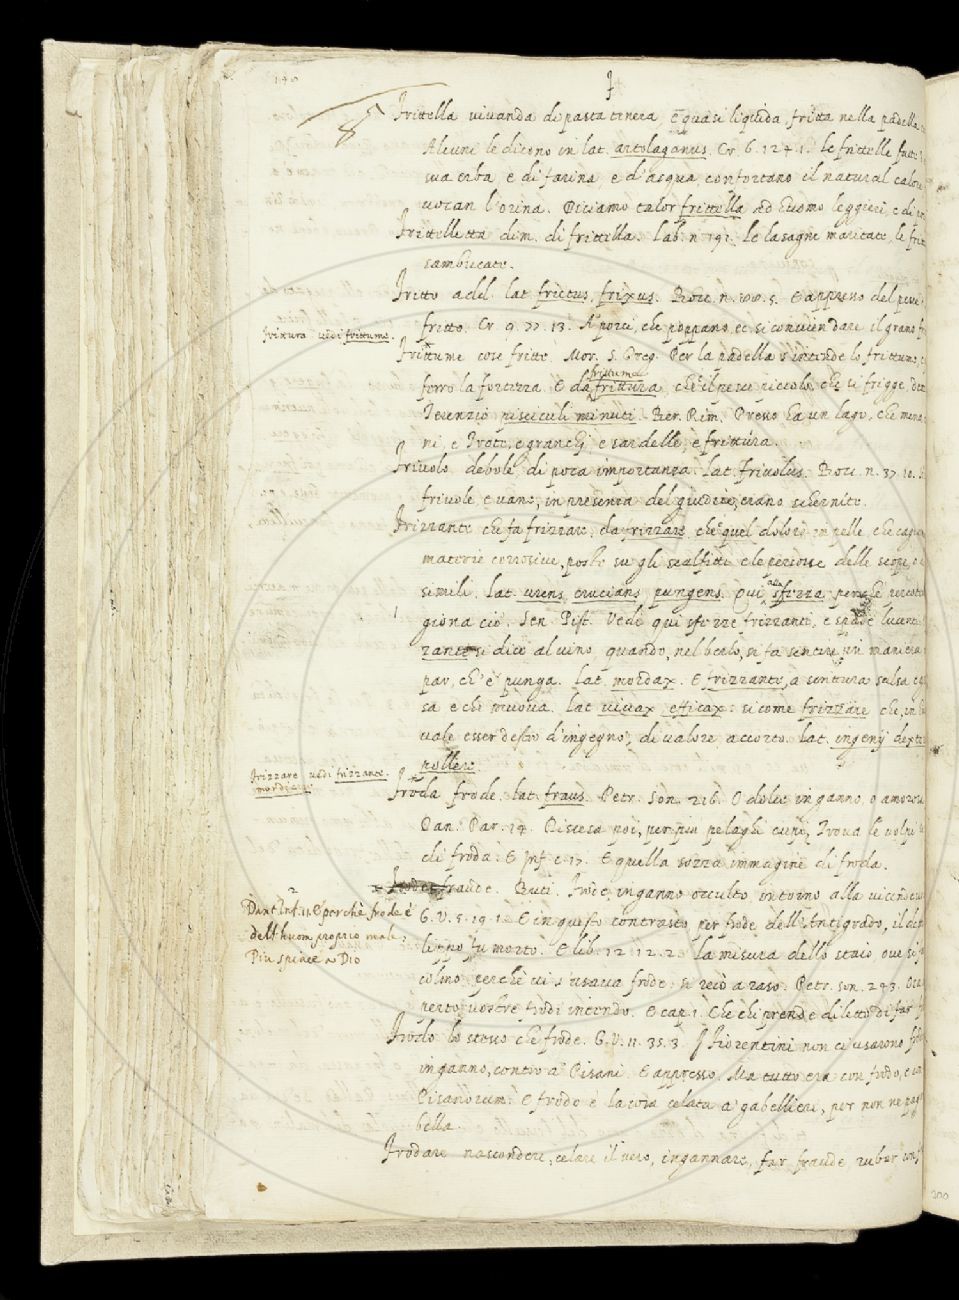 F
Frittella vivanda di pasta tenera, e quasi liquida, fritta nella padella
Alcuni le dicono in lat. artolaganus. Cr. 6. 124. 1. le frittelle fatte
sua erba e di farina, e d'acqua, confortano il natural calore
vocan l'orina. Diciamo talor frittella ad huomo leggieri, e di
Frittelletta dim. di frittella. Lab. n. 191. Le lasagne maritate, le frit
sambucate.
Fritto add. lat. frictus, frixus. Bocc. n. 5. E appresso del pesce
fritto. Cr. 9. 77. 13. A' porci, che poppano, ec. si convien dare il grano
Frittura vedi frittume.
Frittume cose fritte. Mor. S. Greg. Per la padella s'intende lo frittume,
frittume
ferro la fortezza. E da frittura, che il pesce piccolo, che si frigge,
Terenzio pisciculi minuti. Ber. Rim. Presso ha un lago, che mena
ni, e Trote, e granchi, e sardelle, e frittura.
Frivolo debole, di poca importanza. lat. frivolus. Bocc. n. 37. 10.
frivole, e vane, in presenza del giudice, erano schernite.
Frizzante che fa frizzare, da frizzare che è quel dolore in pelle, che
materie corrosive, poste su gli scalfitti e le percosse delle scope,
simili. Lat. urens, crucians, pungens. Qui alla sferza perchè
giona ciò. Sen. Pist. Vedi qui sferze frizzanti, e spade lucenti
zante si dice al vino, quando, nel berlo, si fa sentire, in maniera
par, ch'e' punga. Lat. mordax. E frizzante, a scrittura salsa
sa e che muova. Lat. vivax, efficax: si come frizzare che, in
vale esser destro d'ingegno, di valore, accorto. Lat. ingenij
pollere.
Frizzare vedi frizzante.
Froda frode. Lat. fraus. Petr. Son. 216. O dolce inganno, o amorosa
Dan. Par. 14. Discesa poi, per più pelaghi cupi, Trova le volpi
di froda. E Inf. c. 17. E quella sozza immagine di froda.
fraude. Buti. Frode, inganno occulto intorno alla
Dant. Inf. 11. E perchè frode è
dell'huom proprio male,
Più spiace a Dio
G. V. 5. 19. 1. E in questo contrasto per frode dell'Antigrado, il
fu morto. E lib. 12. 12. 2. La misura dello staio, ove si
colmo, perchè vi s'usava frode: si recò a raso. Petr. son. 243.
vostre frodi intendo. E cap. 1. Che chi prende diletto di far
Frodo lo stesso che frode. G. V. 11. 35. 3. I Fiorentini non ci usarono
inganno, contro a' Pisani. E appresso. Ma tutto era con frodo, e
Pisanorum. E frodo è la cosa celata a' gabellieri, per non ne pag
bella.
Frodare nascondere, celare il vero, ingannare, far fraude, rubar